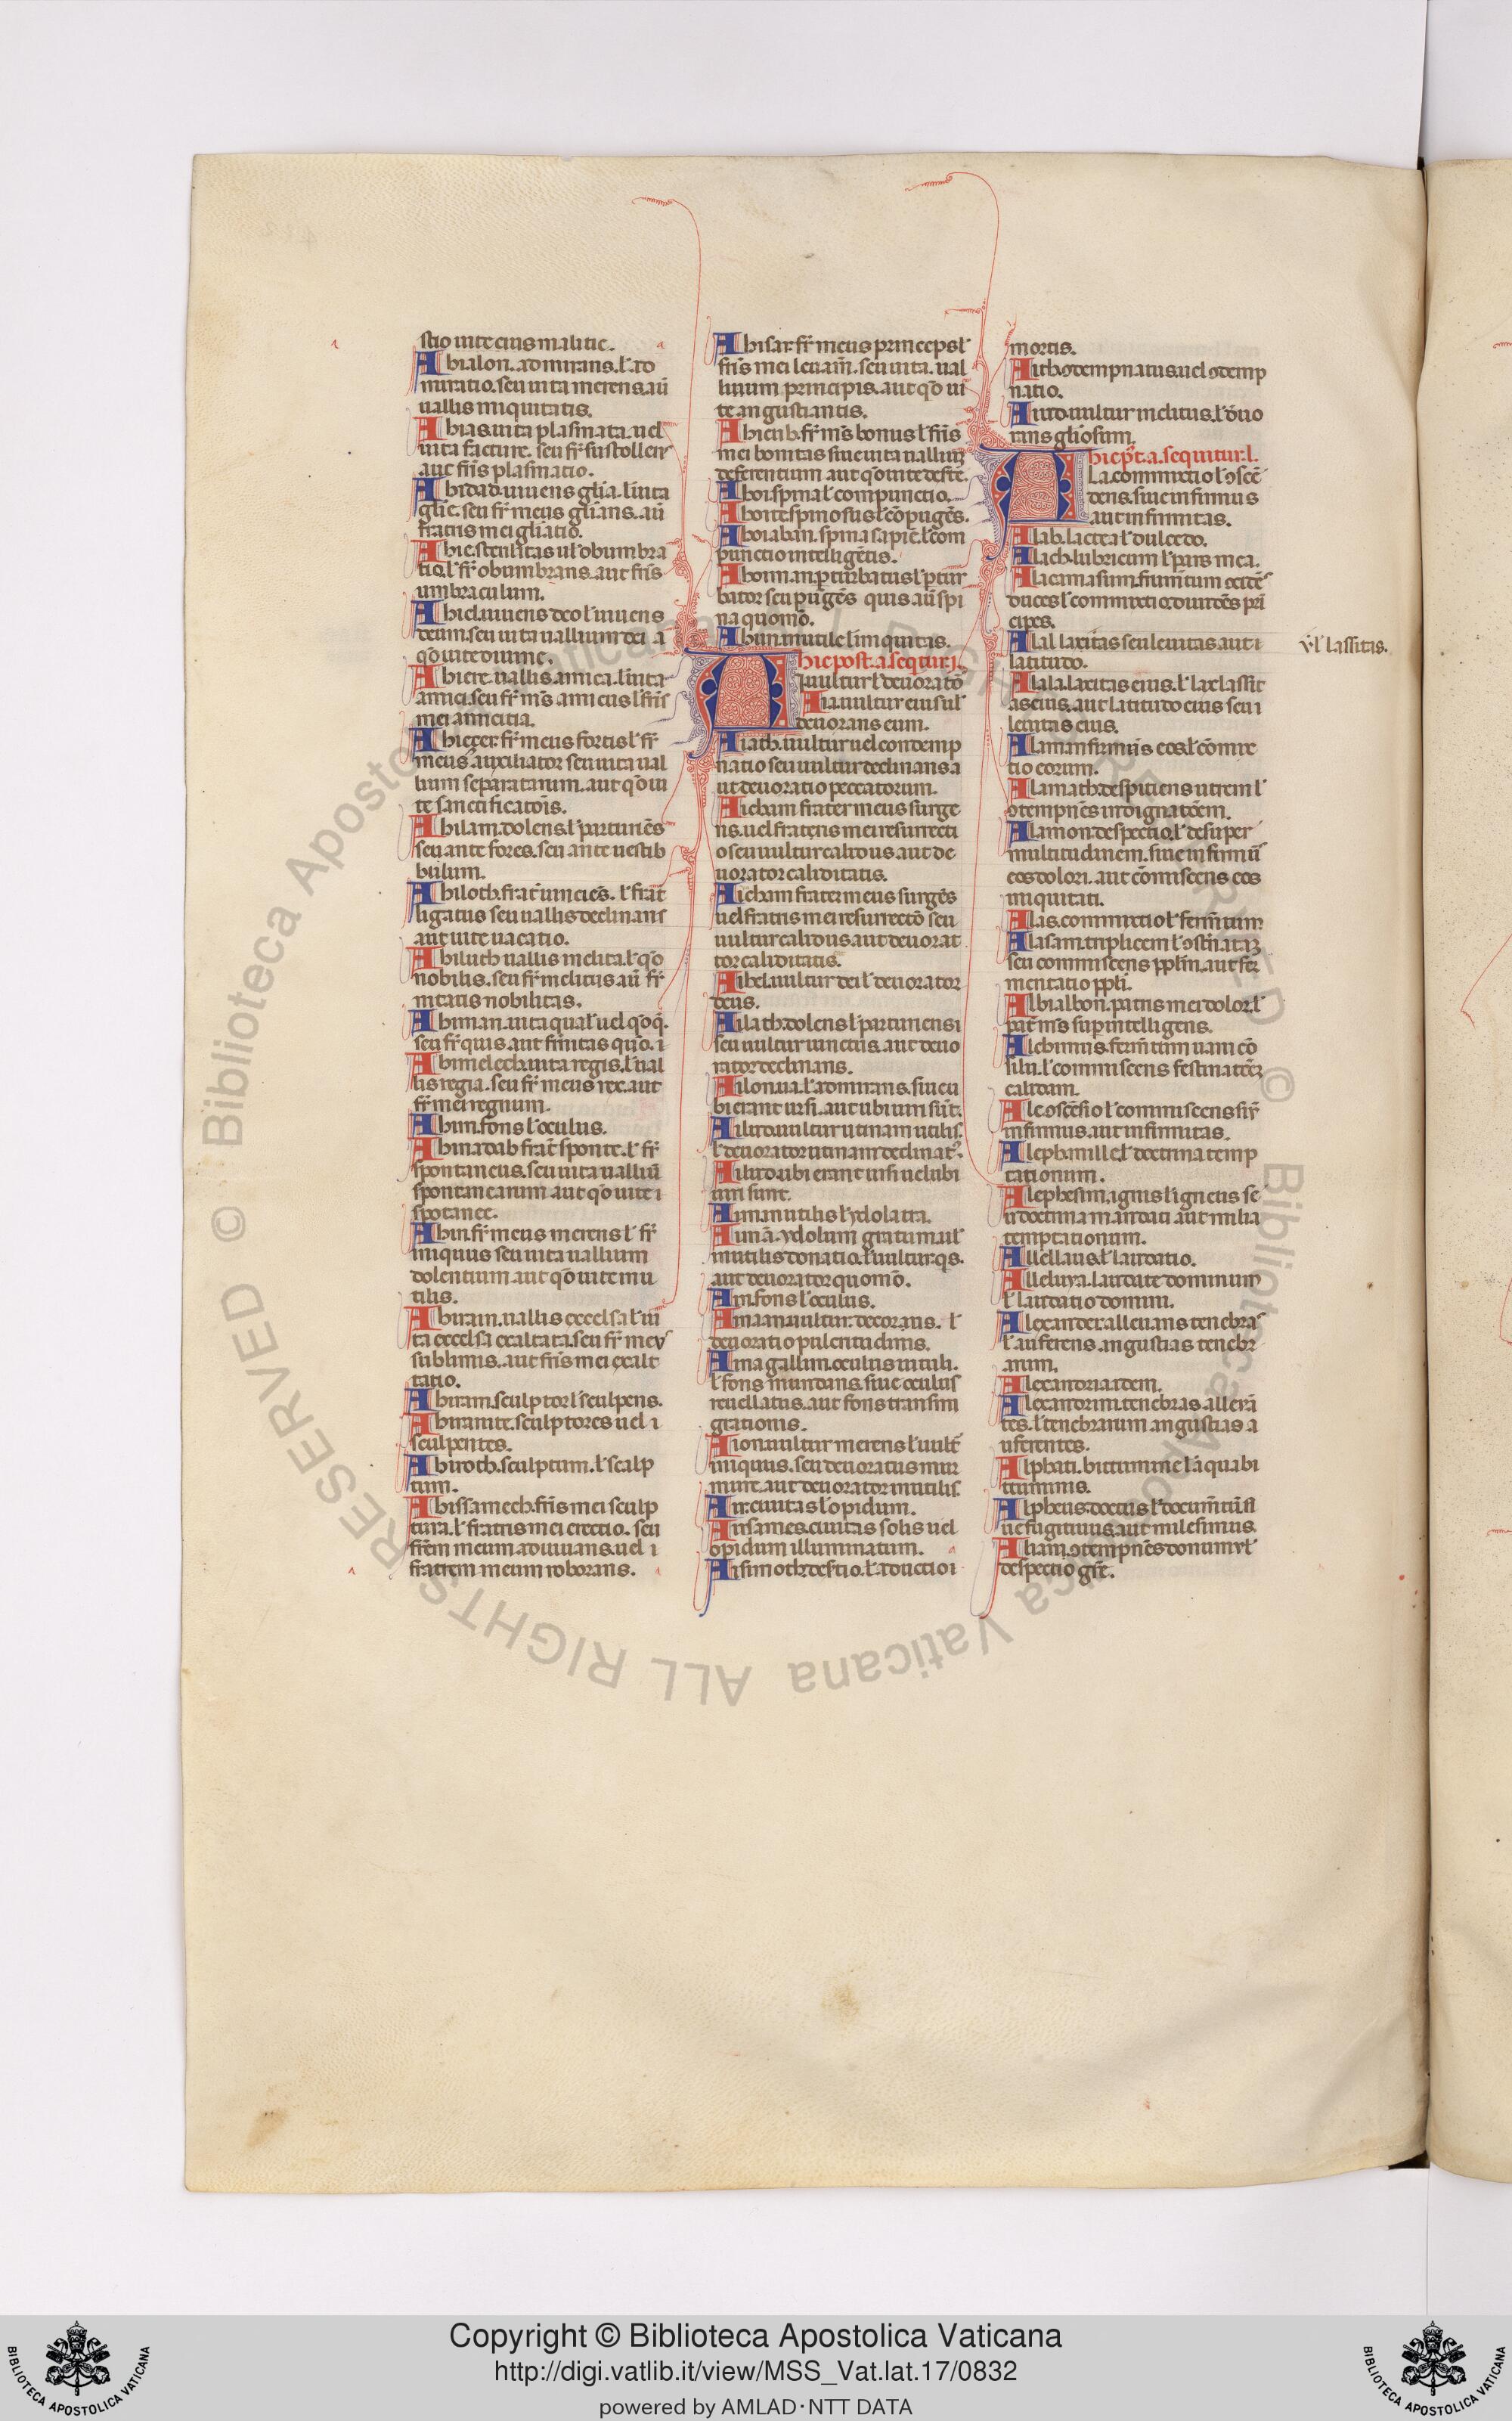 stio uite eius malitie.
Abialon. admirans. ł ad
miratio. seu uita merens. aū
uallis iniquitatis.
Abias. uita plasmata. uel
uita facture. seu fr̄ sustollens
aut fr̄is plasmatio.
Abidad. uiuens gl̄ia. ł uita
gl̄ie. seu fr̄ meus gl̄ians. aū
fratris mei gl̄iatio.
Abie. sterilitas ul̄ obumbra
tio. ł fr̄ obumbrans. aut fr̄is
umbraculum.
Abiel. uiuens deo ł uiuens
deum. seu uita uallium dei. a
q̄o uite diuine.
Abiere. uallis amica. ł uita
amici. seu fr̄ m̄s amicus ł fr̄is
mei amicitia.
Abiezer. fr̄ meus fortis ł fr̄
meus auxiliator seu uita ual
lium separatarum. aut q̄o ui
te sanctificatōis.
Abilam. dolens ł parturiēs
seu ante fores. seu ante uestib
bulum.
Abiloth. frat̄ uincies. ł frat̄
ligatus seu uallis declinans
aut uite uacatio.
Abiluth uallis inclita. ł q̄o
nobilis. seu fr̄ inclitus aū fr̄
nitatis nobilitas.
Abiman. uita qual̄ uel q̄oq̄.
seu fr̄ quis. aut fr̄nitas quo. i
Abimelech. uita regis. ł ual
lis regia. seu fr̄ meus rex. aut
fr̄ mei regnum.
Abim. fons ł oculus.
Abinadab frat̄ sponte. ł fr̄
spontaneus. seu uita ualliū
spontanearum aut q̄o uite i
spōtanee.
Abin. fr̄ meus merens ł fr̄
iniquus seu uita uallium
dolentium aut q̄o uite inu
tilis.
Abiram. uallis excelsa ł ui
ta excelsa exaltata. seu fr̄ meus
sublimis. aut fr̄is mei exalt
tatio.
Abiram. sculptor ł sculpens.
Abiramite. sculptores uel i
sculpentes.
Abiroth. sculptum. ł scalp
tum.
Abissamech. fr̄is mei sculp
tura. ł fratris mei erectio. seu
fr̄em meum adiuuans. uel i
fratrem meum roborans.
Abisar. fr̄ meus princeps ł
fr̄is mei leuam̄. seu uita. ual
lium principis. aut q̄o ui
te angustiantis.
Abieub. fr̄ m̄s bonus ł fr̄is
mei bonitas siue uita uallium
deferentium aut q̄o uite defte.
Aboi. spina ł compunctio.
Aboite. spinosus ł cōpugēs.
Aboiaban. spina sapiē. ł com
punctio intelligētis.
Abonnan. p̄turbatus ł p̄tur
bator seu pugēs quis aū spi
na quomō.
Abun. inutile ł iniquitas.
hic post .a. seqitur .i.
I. uultur ł deuoratō
Aia. uultur eius ul̄
deuorans eum.
Aiath. uultur uel contemp
natio seu uultur declinans a
ut deuoratio peccatorum.
Aicham frater meus surge
ns. uel fratris mei resurrecti
o seu uultur calidus. aut de
uorator caliditatis.
Aicham frater meus surgēs
uel fratris mei resurrectō seu
uultur calidus. aut deuorat
tor caliditatis.
Aibel. uultur dei ł deuorator
deus.
Ailath. dolens ł parturiens i
seu uultur iunctus. aut deuo
rator declinans.
Ailon. ua. ł admirans. siue u
bi erant ursi. aut ubi uni sūt.
Ailud. uultur utinam utilis.
ł deuorator utinam declinat᷒.
Ailud. ubi erant ursi uel ubi
uni sunt.
Aim. inutilis ł ydolatra.
Aimā. ydolum gratum. ul̄
inutilis donatio. ł uultur. q̄s.
aut deuorator quomō.
Ain. fons ł oculus.
Ainam. uultur. decorans. ł
deuoratio pulcritudinis.
Ainagallim. oculus uituli.
ł fons mundans. siue oculus
reuellatus. aut fons transmi
grationis.
Aion. uultur merens ł uult̄
iniquus. seu deuoratus mur
mure. aut deuorator inutilis.
Air. ciuitas ł opidum.
Airsames. ciuitas solis uel
opidum illuminatum.
Aisimoth. destio. ł adductio i
mortis.
Aith. ↄtempnatus uel ↄtemp
natio.
Aiud. uultur inclitus. ł dēuo
rans gl̄iosum.
hic post .a. sequitur .l.
La. commixtio ł ↄscē
dens. siue infirmus
aut infirmitas.
Alab. lactea ł dulcedo.
Alach. lubricum ł pars mea.
occidē
duces ł commixtio. diuidēs pri
cipes.
Alal. laxitas seu leuitas. aut i
latitudo.
Alala. laxitas eius. ł lax lassit
as eius. aut latitudo eius seu i
leuitas eius.
Alaman. firmūs eos ł cōmix
tio eorum.
Alamath. despiciens utrem ł
ↄtempnēs indignatōem.
Alamon. despectio. ł desuper
multitudinem. siue infirmūs
eos dolori. aut cōmiscens eos
iniquitati.
Alas. commixtio ł ferm̄tum.
Alasam. triplicem
seu commiscens pp̄lm. aut fer
mentatio pp̄li.
Albialbon. patris mei dolor. ł
pat̄ m̄s sup̄ intelligens.
Alchimus. ferm̄tum uani cō
silii. ł commiscens festinatōez
calidam.
Ale. oscēsio ł commiscens siū
infirmus. aut infirmitas.
Aleph. mille ł doctrina temp
tationum.
Alephesim. ignis ł igneus se
u doctrina mandati aut milia
temptationum.
Allel. laus ł laudatio.
Alleluya. laudate dominum
ł laudatio domini.
Alexander. alleuians tenebras
ł auferens. angustias tenebr
arum.
Alexandria. idem.
Alexandrini. tenebras alleuiā
tes. ł tenebrarum angustias a
uferentes.
Alphati. bitumine ł aqua bi
tuminis.
Alpheus. doctus ł docum̄tū si
ue fugitiuus. aut milesimus.
Aliam. ↄtempnēs donum. v̄l
despectio gr̄e.
v̄l lassitas.
Copyright © Biblioteca Apostolica Vaticana
http://digi.vatlib.it/view/MSS_Vat.lat.17/0832
powered by AMLAD·NTT DATA
BIBLIOTECA APOSTOLICA VATICANA
BIBLIOTECA APOSTOLICA VATICANA
© Biblioteca Apostolica Vaticana ALL RIGHTS RESERVED